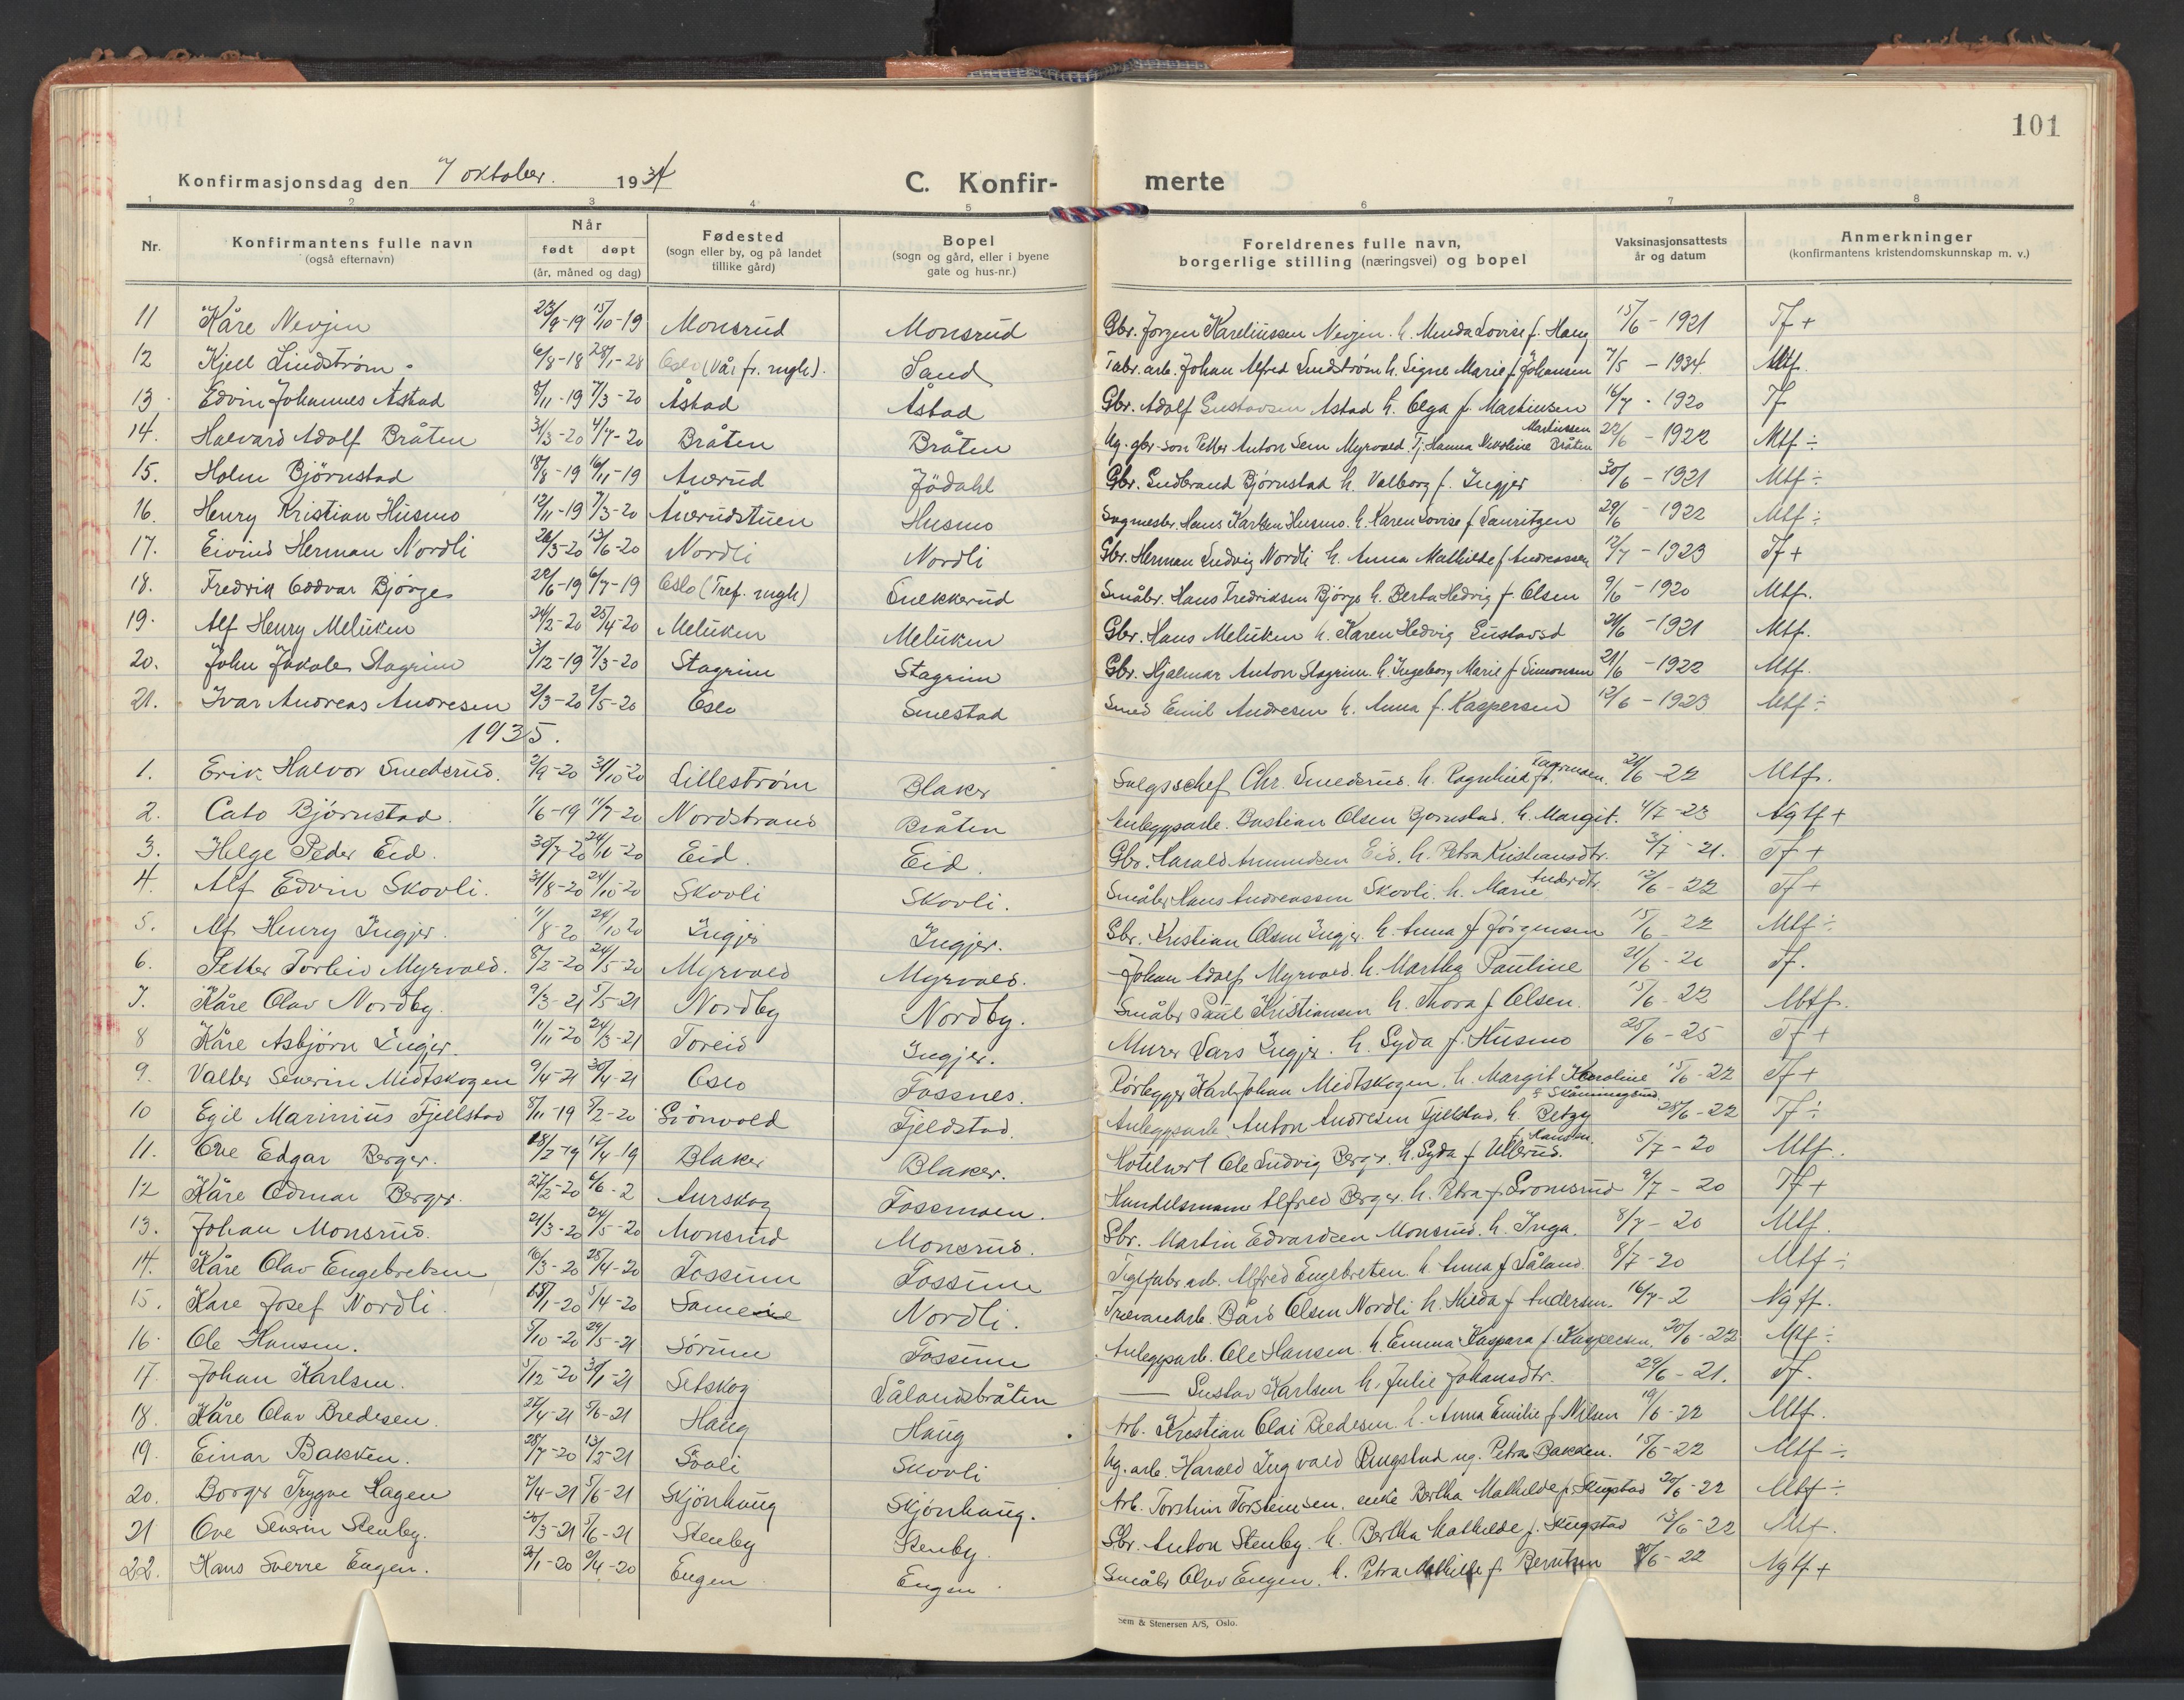 101
Konfirmasjonsdag den 7 oktober. 1934 C. Konfirmerte
1 2 3 4 5 6 7 8
Nr. Konfirmantens fulle navn (også efternavn) Når født døpt (år, måned og dag) Fødested (sogn eller by, og på landet tillike gård) Bopel (sogn og gård, eller i byene gate og hus-nr.) Foreldrenes fulle navn, borgerlige stilling (næringsvei) og bopel Vaksinasjonsattests år og datum Anmerkninger (konfirmantens kristendomskunnskap m. v.)
11 Kåre Nevjen 23/9-19 15/10-19 Monsrud Monsrud Gbr. Jørgen Kareliussen Nevjen. h. Minda Lovise f. Haug 15/6-1921 Tf +
12 Kjell Lindstrøm. 6/8-18 28/1-28 Oslo (Vår fr. mgh). Sand Fabr. arb. Johan Alfred Lindstrøm h. Signe Marie f. Johansen 7/5-1934. Mtf.
13 Edvin Johannes Åstad 8/11-19 7/3-20 Åstad Åstad Gbr. Adolf Gustavsen Åstad h. Olga f. Martinsen 16/7-1920 Tf
14. Halvard Adolf Bråten 31/3-20 4/7-20 Bråten Bråten Ug. gbr. søn Petter Anton Sem Myrvold. Tj. Hanna Nikoline Martiussen Bråten 22/6-1922 Mtf ÷
15. Holm Bjørnstad 18/8-19 16/11-19 Aurud Jødahl Gbr. Gudbrand Bjørnstad h. Valborg f. Ingjer 30/6-1921 Mtf ÷
16. Henry Kristian Husmo 12/11-19 7/3-20 Åurudstuen Husmo Sagmester. Hans Karlsen Husmo. h. Karen Lovise f Lauritzen 29/6-1922 Mtf ÷
17. Eivind Herman Nordli 26/3-20 13/6-20 Nordli Nordli Gbr. Herman Ludvig Nordli h. Anna Mathilde f Andreassen 12/7-1923 Tf +
18. Fredrik Oddvar Bjørge 22/6-19 6/7-19 Oslo (Tref. mgh) Snekkerud Småbr. Hans Fredriksen Bjørge h. Berta Hedvig f. Olsen 9/6-1920 Mtf.
19. Alf Henry Meluken 24/2-20 25/4-20 Meluken Meluken Gbr. Hans Meluken h. Karen Hedvig Gustavsd 24/6-1921 Mtf.
20. John Jakob Stagrim 3/12-19 7/3-20 Stagrim Stagrim Gbr. Hjalmar Anton Stagrim. h. Ingeborg Marie f Simonsen 21/6-1922 Mtf.
21. Ivar Andreas Andresen 2/3-20 2/5-20 Oslo Smestad Smed Emil Andresen h. Anna f. Kaspersen 12/6-1923 Mtf ÷
1935.
1. Erik Halvor Smedsrud. 2/9-20 31/10-20 Lillestrøm Blaker Salgsschef Chr. Smedsrud. h. Ragnhild f. Fagermoen. 21/6-22 Mtf.
2. Cato Bjørnstad. 1/6-19 11/7-20 Nordstrand Bråten Anleggsarb. Bastian Olsen Bjørnstad. h. Margit. 4/7-23 Ng tf +
3. Helge Peder Eid. 30/7-20 24/10-20 Eid. Eid. Gbr. Harald Amundsen Eid. h. Petra Kristiansdtr. 3/7-21. Tf +
4. Alf Edvin Skovli. 31/8-20 24/10-20 Skovli Skovli. Småbr. Hans Andreassen Skovli. h. Marie Andersdtr. 12/6-22 Tf +
5. Alf Henry Ingjer. 11/8-20 24/10 20 Ingjer Ingjer. Gbr. Kristian Olsen Ingjer. h. Anna f Jørgensen 15/6 22 Mtf ÷
6. Petter Torleiv Myrvold. 8/2-20 24/5-20 Myrvold Myrvold. Johan Adolf Myrvold. h. Martha Pauline 21/6-21 Tf.
7. Kåre Olav Nordby. 9/3-21 5/5-21 Nordby Nordby. Småbr Paul Kristiansen h. Thora f Olsen. 15/6-22 Mtf.
8 Kåre Asbjørn Ingjer. 11/11-20 24/3-21 Toreid Ingjer. Murer Lars Ingjer. h. Gyda f. Husmo 25/6-25 Tf +
9. Valter Severin Midtskogen 9/4-21 30/4-21 Oslo Fossnes. Rørlegger Karl Johan Midtskogen. h. Margit Karoline 15/6-22 Tf +
10 Egil Marinius Fjellstad 8/11-19 8/2-20 Grønvold Fjeldstad. Anleggsarb. Anton Andresen Fjellstad. h. Betzy 28/6-22 Tf ÷
11. Ove Edgar Berger. 18/2-19 12/4-19 Blaker Blaker. Hotelvert Ole Ludvig Berger. h. Gyda f Ullerud. 5/7-20 Mtf.
12 Kåre Odmar Berger. 27/2-20 6/6-2 Aurskog Fossmoen. Handelsmann Alfred Berger. h. Petra f. Gromsrud 9/7-20 Tf +
13. Johan Monsrud. 21/3-20 24/5-20 Monsrud Monsrud. Gbr. Martin Edvardsen Monsrud. h. Inga. 8/7-20 Mtf.
14. Kåre Olav Engebretsen 16/3-20 25/4-20 Fossum Fossum Teglfabr. arb. Alfred Engebretsen. h. Anna f Såland. 8/7-20 Mtf ÷
15. Kåre Josef Nordli. 18/1-20 5/4-20 Samme Nordli. Trævarearb. Bård Olsen Nordli h. Hilda f Andersen. 16/7-2 Ng tf.
16. Ole Hansen. 5/10-20 29/5-21 Sørum Fossum Anleggsarb. Ole Hansen. h. Emma Kaspara f. Kaspersen. 20/6-22 Mtf ÷
17. Johan Karlsen. 5/12-20 30/1-21 Setskog Sålandsbråten — Gustav Karlsen h. Julie Johansdtr. 29/6-21. Tf.
18. Kåre Olav Bredesen. 27/4-21 5/6-21 Haug Haug Arb. Kristian Olai Bredesen. h. Anna Emilie f. Nilsen 19/6-22 Mtf.
19. Einar Bakken. 28/7-20 13/3-21 Foali Skovli Ug. arb. Harald Ingvald Ringstad ug. Petra Bakken. 15/6-22 Mtf ÷
20. Borger Trygve Hagen 7/4-21 5/6-21 Skjønhaug Skjønhaug. Arb. Torstein Torsteinsen. enke Bertha Mathilde f. Skugstad 20/6-22 Mtf ÷
21 Ove Severin Stenby. 20/3-21 5/6-21 Stenby Stenby. Gbr. Anton Stenby. h. Bertha Mathilde f. Skugstad 13/6-22 Mtf.
22. Hans Sverre Engen. 21/1-20 9/4-20 Engen Engen. Småbr Olav Engen. h. Petra Mathilde f. Berntsen 6-22 Ng tf +
Sem & Stenersen A/S, Oslo.